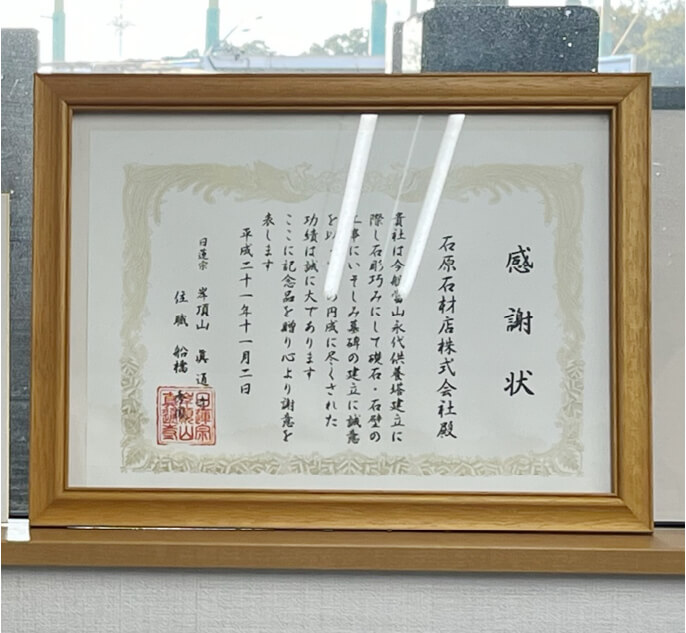 感謝状
石原石材店株式会社殿
貴社は今般當山永代供養塔建立に
際し石彫巧みにして礎石・石壁の
工事にいそしみ墓碑の建立に誠意
を以 円成に尽くされた
功績は誠に大であります
ここに記念品を贈り心より謝意を
表します
平成二十一年十一月二日
日蓮宗 岸頂山 眞通
住職 船橋